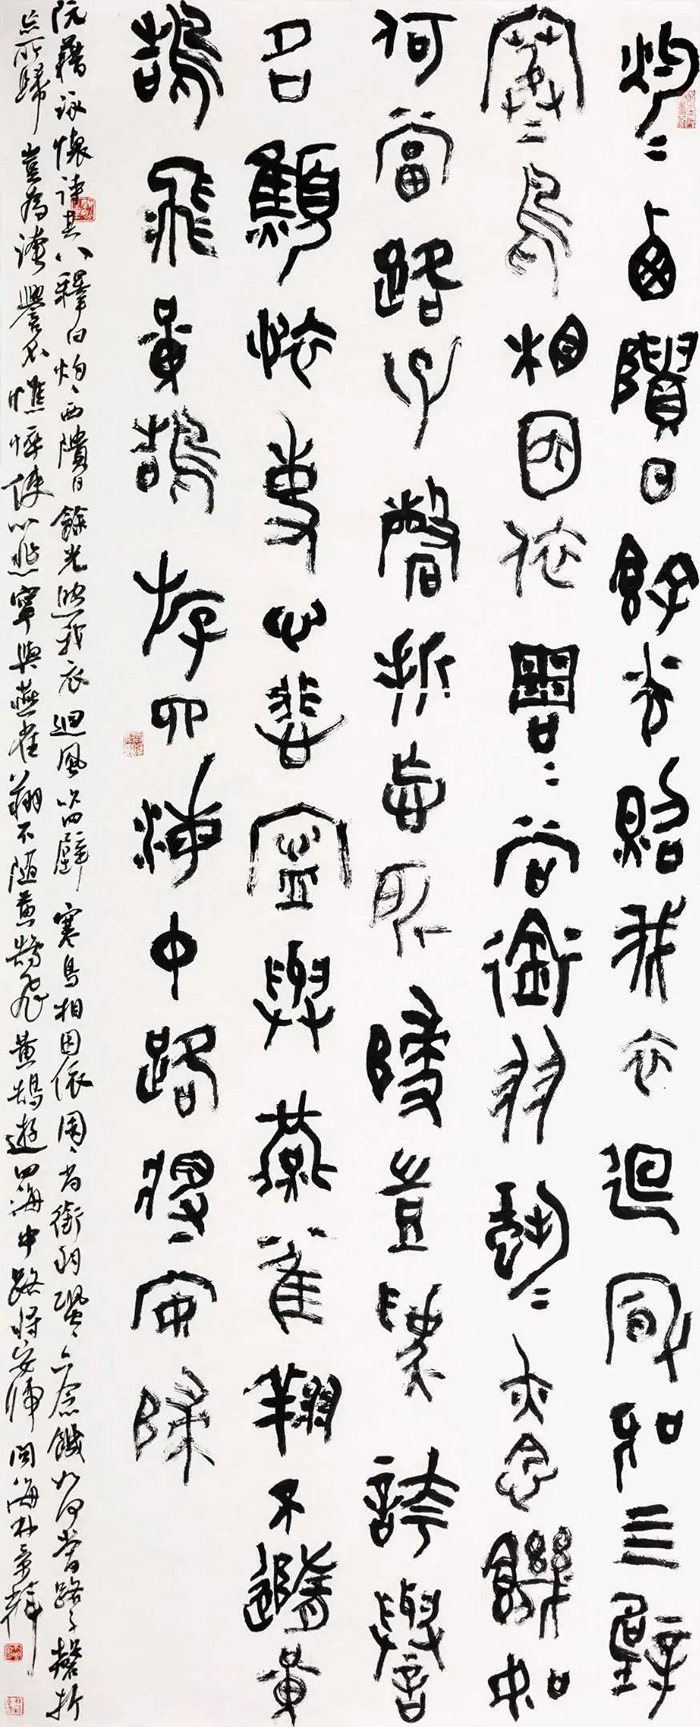 灼〻西隤日餘光照我衣迴風吹三壁
寒鳥相因依周〻尚銜羽蛩〻亦念饑如
何當路子磬折忘所歸豈為誇譽
名顦悴使心悲寧與燕雀翔不隨黃
鵠飛黃鵠游四海中路將安歸
阮籍詠懷詩其八釋曰灼〻西隤日餘光照我衣迴風吹四壁寒鳥相因依周〻尚銜羽蛩〻亦念饑如何當路子磬折
忘所歸豈為誇譽名憔悴使心悲寧與燕雀翔不隨黃鵠飛黃鵠遊四海中路將安歸閩海